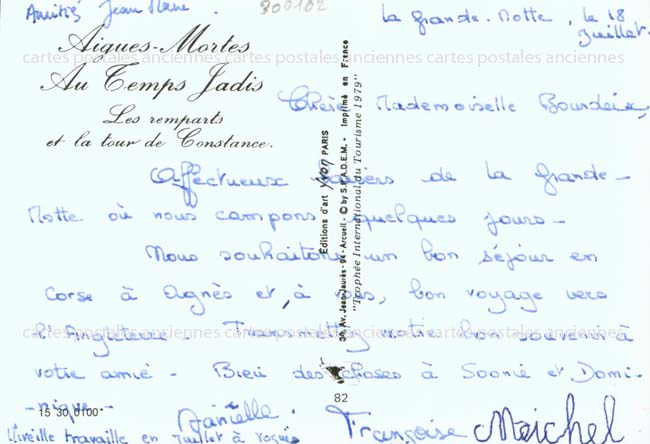 Amitiés Jean Marc
300102
La Grande-Motte, le 18
Juillet.
Aigues-Mortes
Au Temps Jadis
Les remparts
et la tour de Constance.
cartes postales anciennes cartes postales anciennes cartes postales anciennes
Chère Mademoiselle
Affectueux baisers de la Grande-
Motte où nous campons quelques jours-
Nous souhaitons un bon séjour en
Corse à Agnès et, à vous, bon voyage vers
l'Angleterre. Transmettez notre bon souvenir à
cartes postales anciennes cartes postales anciennes cartes postales anciennes
votre amie - Bien des choses à et Domi-
nique-
Danielle. Françoise Meichel
travaille en juillet à
15 30 0100
82
Éditions d'art yvon PARIS
36, Av. Jean-Jaurès - 94 - Arcueil - © by S.P.A.D.E.M. - Imprimé en France
"Trophée International du Tourisme 1979"